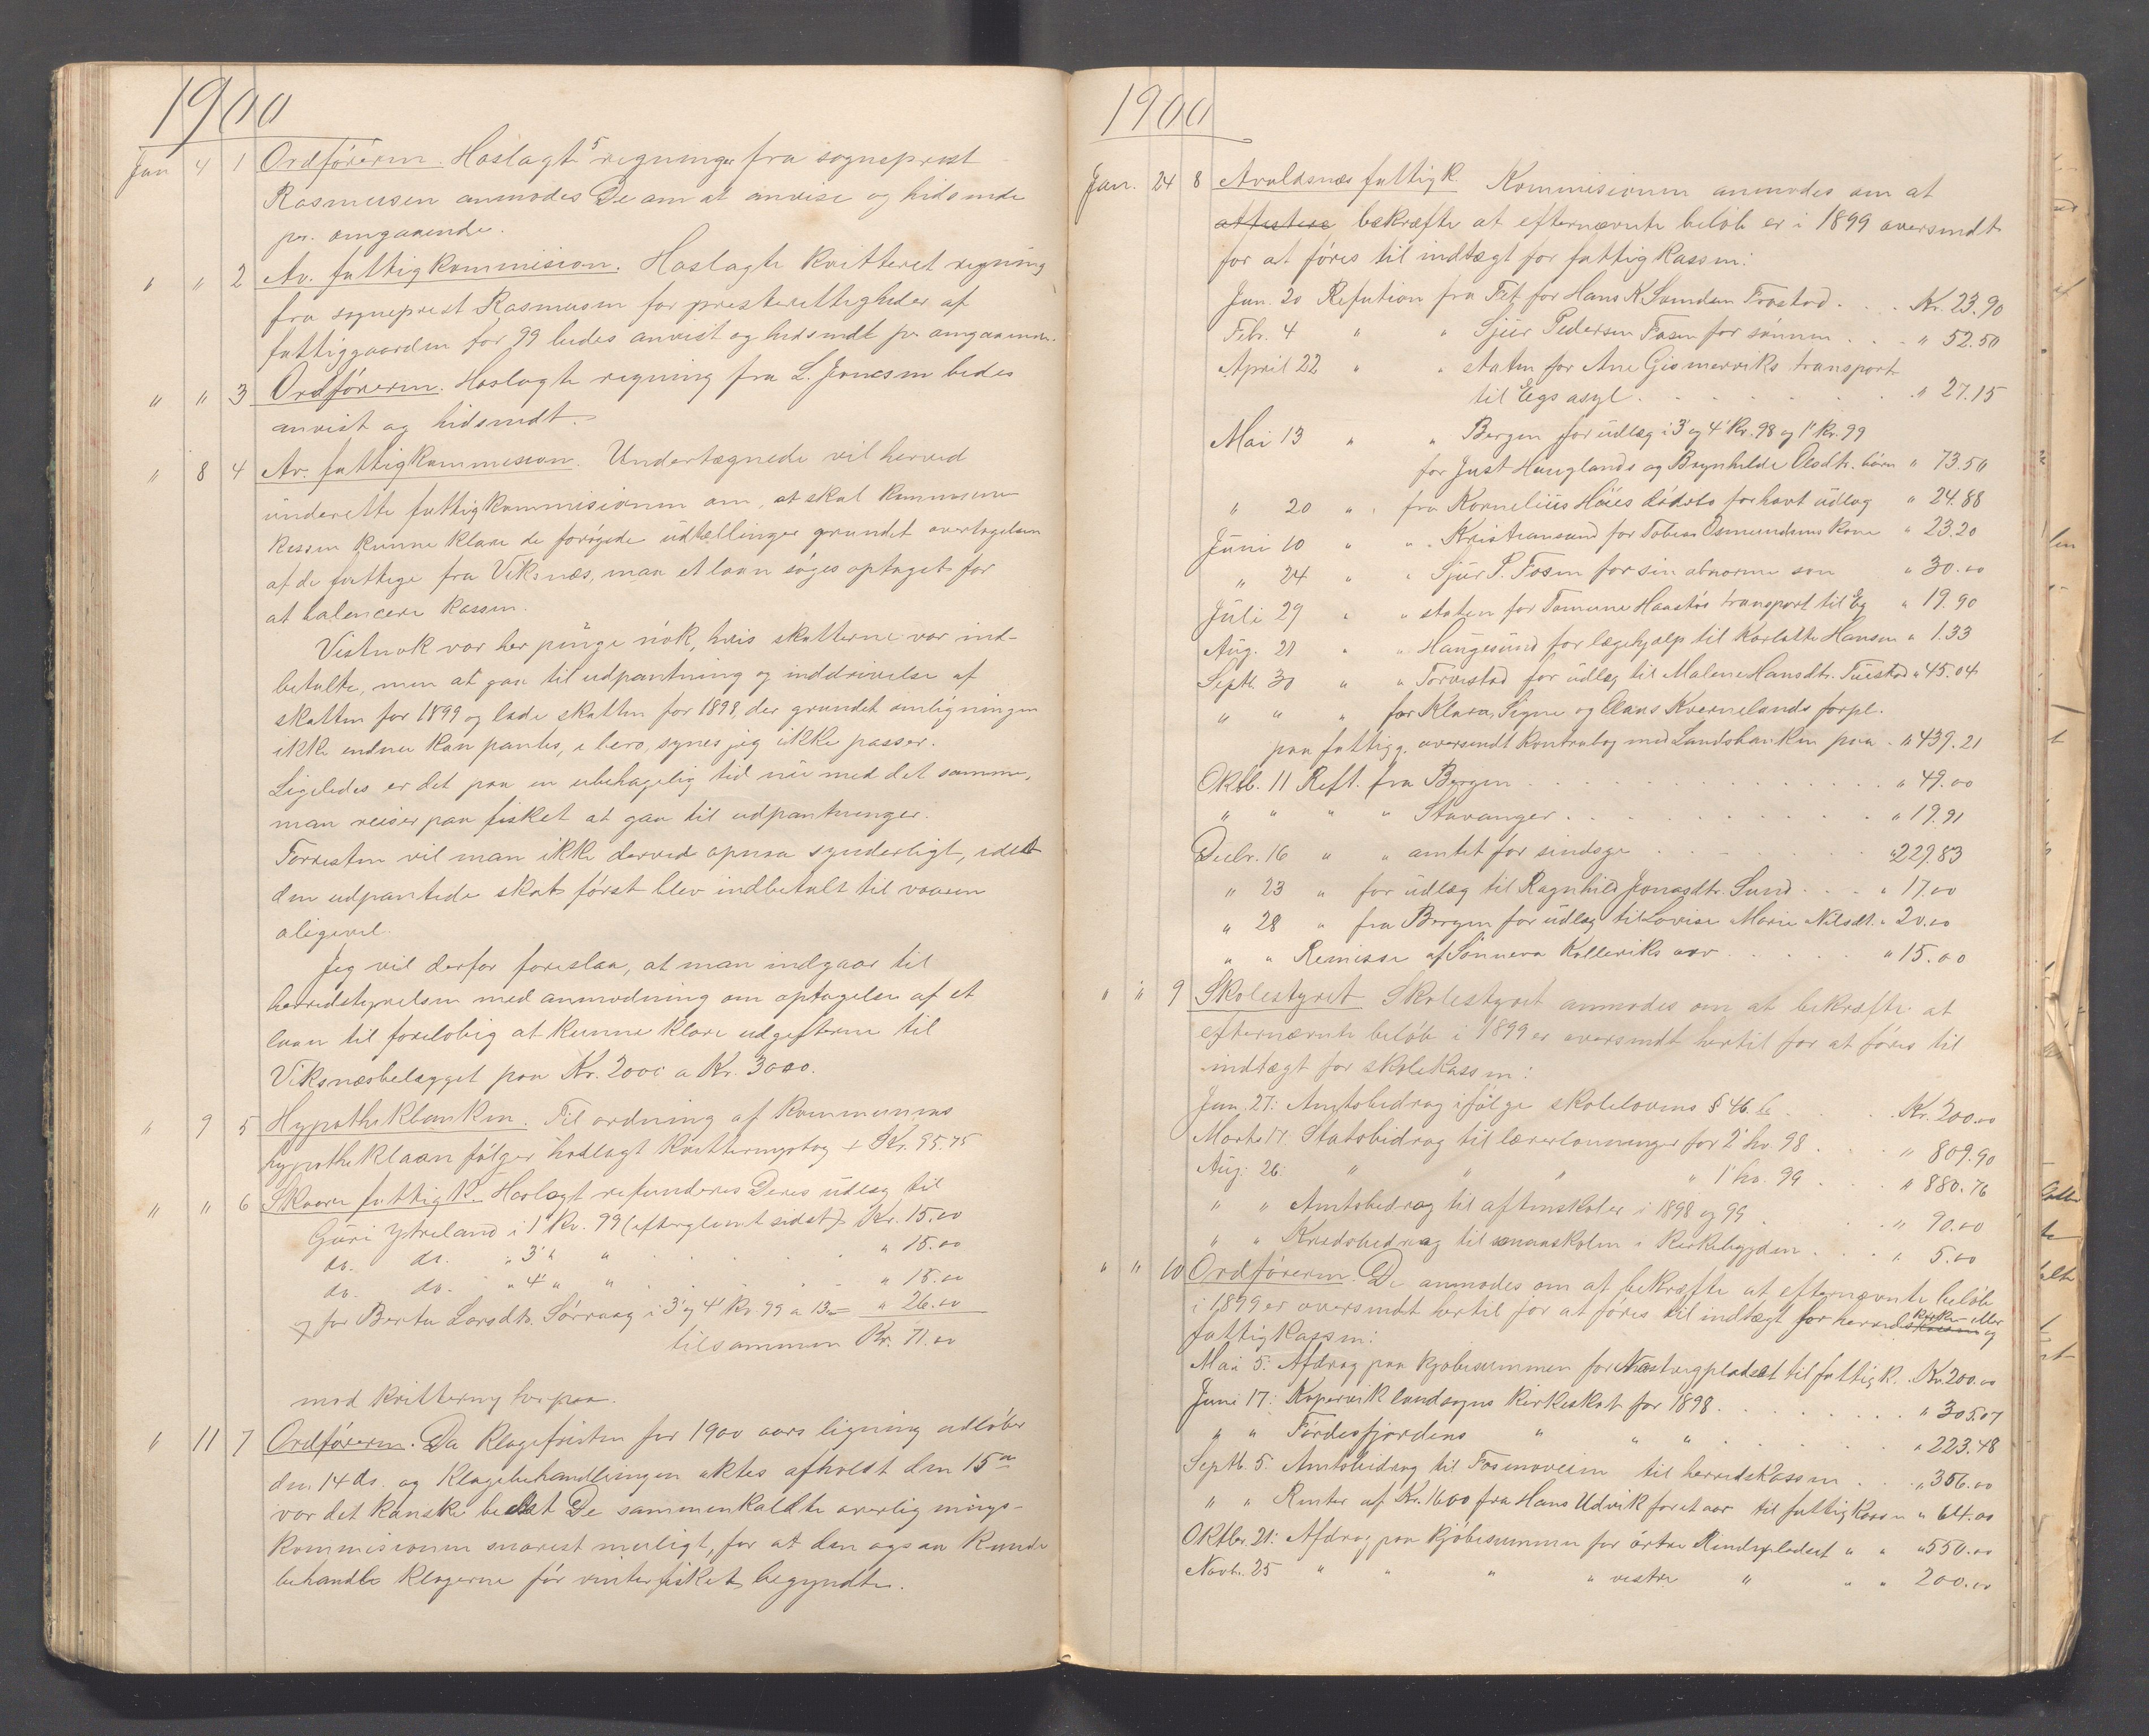 1900
Jan 4 1 Ordføreren. Hoslagt 5 regninger fra sogneprest
Rasmusen anmodes De om at anvise og hidsende
pr. omgaaende.
" " 2 Av. fattigkommision. Hoslagte kvitteret regning
fra sogneprest Rasmusen for presterettigheder af
fattiggaarden for 99 bedes anvist og hidsendt pr omgaaende.
" " 3 Ordføreren. Hoslagte regning fra L. Jonesen bedes
anvist og hidsendt.
" 8 4 Av. fattigkommision. Undertegnede vil herved
underette fattigkommisionen om, at skal kommunens
kassen kunne klare de forøgede udtællinger grundet overtagelsen
af de fattige fra Viksnæs, maa et laan søges optaget for
at balancere kassen.
Vistnok var her penge nok, hvis skatterne var ind-
betalte, men at gaa til udpantning og inddrivelse af
skatten for 1899 og lade skatten for 1898, der grundet omligningen
ikke endnu kan pantes, i bero, synes jeg ikke passer.
Ligeledes er det paa en ubehagelig tid nu med det samme,
man reiser paa fisket at gaa til udpantninger.
Forresten vil man ikke derved opnaa synderligt, idet
den udpantede skat først blev indbetalt til vaaren
aligevel.
Jeg vil derfor foreslaa, at man indgaar til
herredstyrelsen med anmodning om optagelse af et
laan til foreløbig at kunne klare udgifterne til
Viksnæsbelægget paa Kr. 2000 a Kr. 3000.
" 9 5 Hypothekbanken. Til ordning af kommunens
hypotheklaan følger hoslagt kvitteringsbog + Kr. 95.75
" " 6 Skaare fattigk. Hoslagt refunderes Deres udlæg til
Guri Ytreland i 1' kv. 99 (efterglemt sidst) Kr. 15.00
do. do. " 3' " " . . . " 15.00
do. do. " 4' " " . . . " 15.00
og for Berta Larsdtr. Sørvaag i 3' og 4' kv. 99 a 13.00 = " 26.00
tilsammen Kr. 71.00
mod kvittering herpaa.
" 11 7 Ordføreren. Da klagefristen for 1900 aars ligning udløber
den 14 ds. og klagebehandlingen aktes afholdt den 15de
var det kanske bedst De sammenkaldte overlignings-
kommisionen snarest muligt, for at den ogsaa kunde
behandle klagerne før vinterfisket begyndte.
1900
Jan. 24 8 Avaldsnæs fattigk. Kommisionen anmodes om at
attestere bekræfte at efternævnte beløb er i 1899 oversendt
for at føres til indtægt for fattigkassen:
Jan. 20 Refution fra Tit for Hans K Svendsen Frøstad . . . Kr. 23.90
Febr. 4 " " Sjur Pedersen Fosen for sønnen . . . " 52.50
April 22 " " staten for Ane Gismerviks transport
til Egs asyl . . . . . . . " 27.15
Mai 13 " " Bergen for udlæg i 3' og 4' kv. 98 og 1' kv. 99
for Just Hauglands og Brynhilde Olsdtr. børn " 73.50
" 20 " " fra Kornelius Høies dødsbo forhavt udlæg " 24.88
Juni 10 " " Kristiansand for Tobias Osmundsens kone " 23.20
" 24 " " Sjur P. Fosen for sin abnorme søn " 30.00
Juli 29 " " staten for Tomine Haastøs transport til Eg " 19.90
Aug. 21 " " Haugesund for lægehjælp til Karlotte Hansen " 1.33
Septb. 30 " " Torvestad for udlæg til Malene Hansdtr. Tuestad " 45.04
" " " for Klara, Signe og Claus Kvernelands forpl.
paa fattigg. oversendt kontrabog med Landsbanken paa . " 439.21
Oktb. 11 Reft. fra Bergen . . . . . . . " 49.00
" " " " Stavanger . . . . . . . " 19.91
Decbr. 16 " " amtet for sindsge . . . . " 229.83
" 23 " for udlæg til Ragnhild Jonasdtr. Sund . . . " 17.00
" 28 " fra Bergen for udlæg til Lovise Marie Nilsdt. " 20.00
" " Remisse af Sønneva Kolleviks arv . . . . " 15.00
" " 9 Skolestyret Skolestyret anmodes om at bekræfte at
efternævnte beløb i 1899 er oversendt hertil for at føres til
indtægt for skolekassen:
Jan. 27: Amtsbidrag ifølge skolelovens § 46. b . . . Kr. 200.00
Marts 17. Statsbidrag til lærerlønninger for 2' hv. 98 . . " 809.90
Aug. 26: " " " " 1' hv. 99 . . . " 880.76
" " Amtsbidrag til aftenskoler i 1898 og 99 . . . " 90.00
" " Kredsbidrag til smaaskolen i Kirkebygden . . . " 5.00
" " 10 Ordføreren. De anmodes om at bekræfte at efternævnte beløb
i 1899 er oversendt hertil for at føres til indtægt for herreds kirke- eller
kassen og
fattigkassen:
Mai 5: Afdrag paa kjøbesummen for Nøstvigpladset til fattigk. Kr. 200.00
Juni 17: Kopervik landsogns kirkeskat for 1898 . . . . " 305.07
" " Førdesfjordens " " " . . . . " 223.48
Septb. 5. Amtsbidrag til Fosenveien til herredskassen . . " 356.00
" " Renter af Kr. 1600 fra Hans Udvik for et aar til fattigkassen " 64.00
Oktbr. 21: Afdrag paa kjøbesummen for østre Rindepladset " " " 550.00
Novb. 25 " " " " vestre " " " 200.00